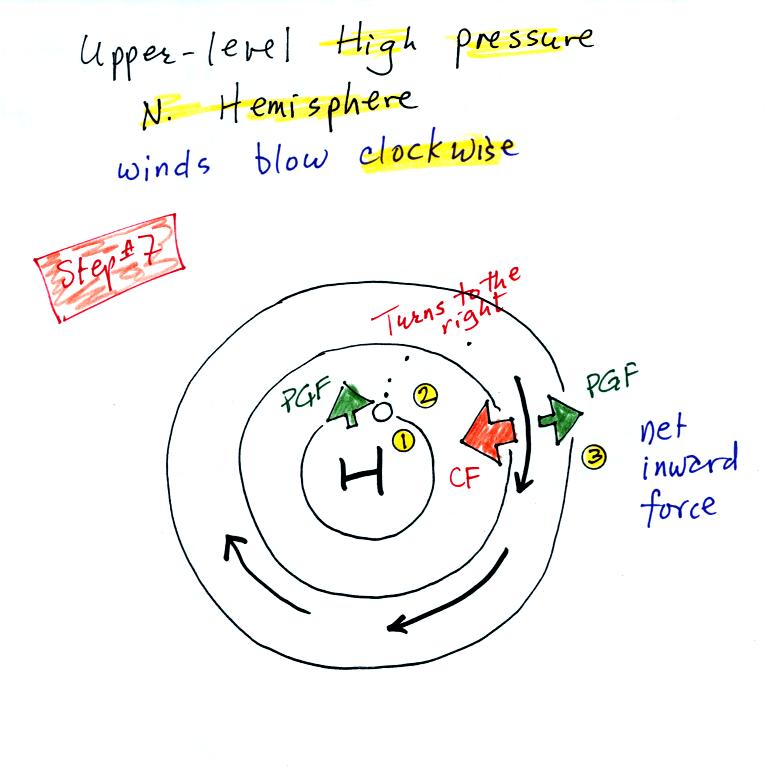 Upper-level High pressure
N. Hemisphere
winds blow clockwise
Step #7
Turns to the
right
PGF
2
PGF
1
H
CF
3
net
inward
force